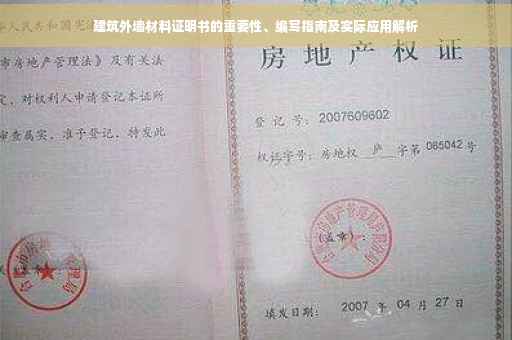 建筑外墙材料证明书的重要性、编写指南及实际应用解析
人民共和国宪
市房地产管理法》及有关法
定，对权利人申请登记本证所
审查属实，准予登记，特发此
房地产权证
登记号：2007609602
权证字号：房地权 庐 字第 065042 号
(盖章)：
填发日期：2007 年 04 月 27 日